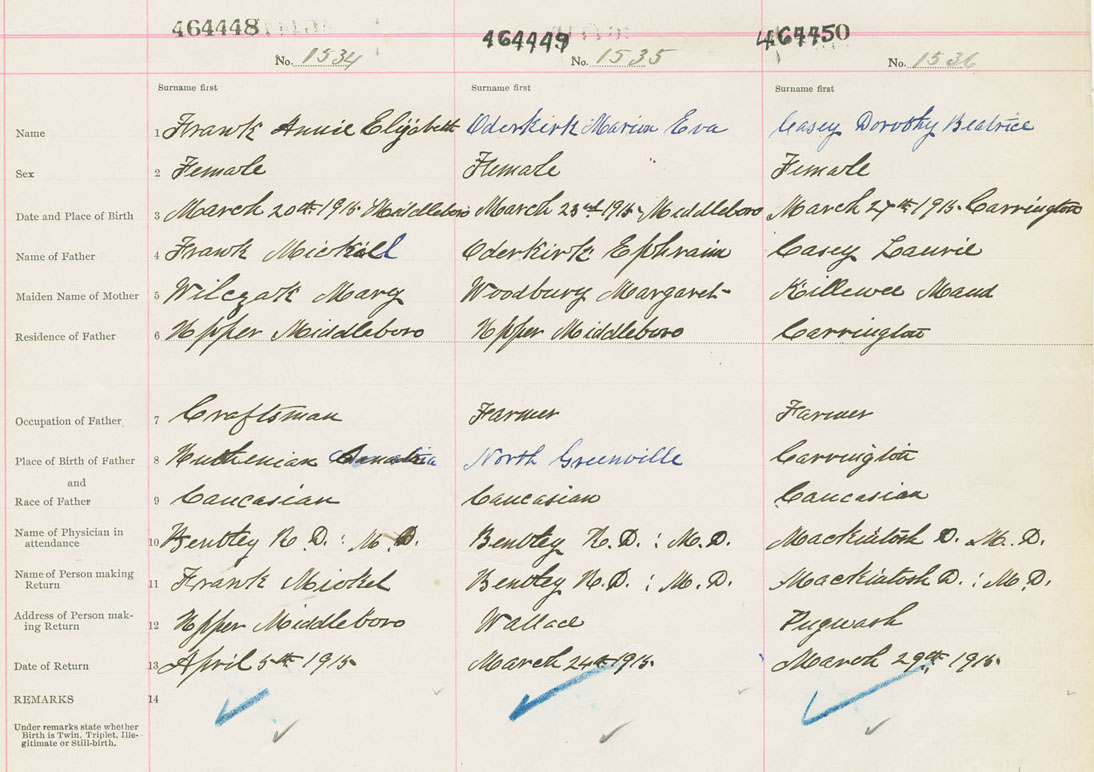 464448 464449 464450
No. 1534 No. 1535 No. 1536
Surname first Surname first Surname first
Name 1 Frank Annie Elizabeth Oderkirk Marion Eva Casey Dorothy Beatrice
Sex 2 Female Female Female
Date and Place of Birth 3 March 20th 1915 Middleboro March 23rd 1915 Middleboro March 27th 1915 Carrington
Name of Father 4 Frank Mickill Oderkirk Ephraim Casey Laurie
Maiden Name of Mother 5 Wilczak Mary Woodbury Margaret Killewee Maud
Residence of Father 6 Upper Middleboro Upper Middleboro Carrington
Occupation of Father 7 Craftsman Farmer Farmer
Place of Birth of Father 8 Ruthenian North Greenville Carrington
and
Race of Father 9 Caucasian Caucasian Caucasian
Name of Physician in
attendance 10 Bentley R. D. : M. D. Bentley R. D. : M. D. Mackintosh D. M. D.
Name of Person making
Return 11 Frank Mickel Bentley R. D. : M. D. Mackintosh D. : M. D.
Address of Person mak-
ing Return 12 Upper Middleboro Wallace Pugwash
Date of Return 13 April 5th 1915 March 24th 1915. March 29th 1915.
REMARKS 14
Under remarks state whether
Birth is Twin, Triplet, Ille-
gitimate or Still-birth.